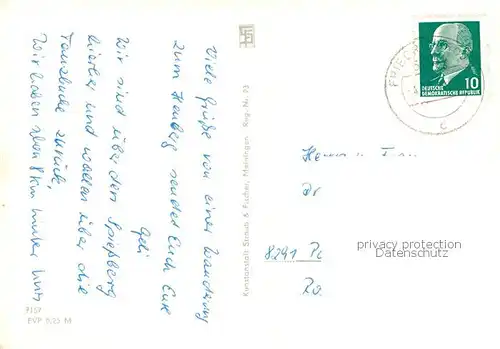 Viele Grüße von einer Wanderung
zum Heuberg sendet Euch Eure
Geli
Wir sind über den Spießberg
hierher und wollen über die
Tanzbuche zurück.
Wir haben schon 8 km hinter uns
7157
EVP 0,25 M
Kunstanstalt Straub & Fischer, Meiningen Reg.-Nr. 93
FRIED
c
10
DEUTSCHE
DEMOKRATISCHE REPUBLIK
Herrn u. Frau
Dr
8291
privacy protection
Datenschutz